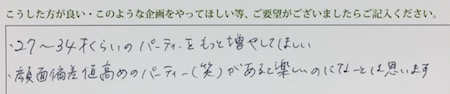 こうした方が良い・このような企画をやってほしい等、ご要望がございましたらご記入ください。
・27〜34才くらいのパーティーをもっと増やしてほしい
・顔面偏差値高めのパーティー(笑)があると楽しいのになーとは思います